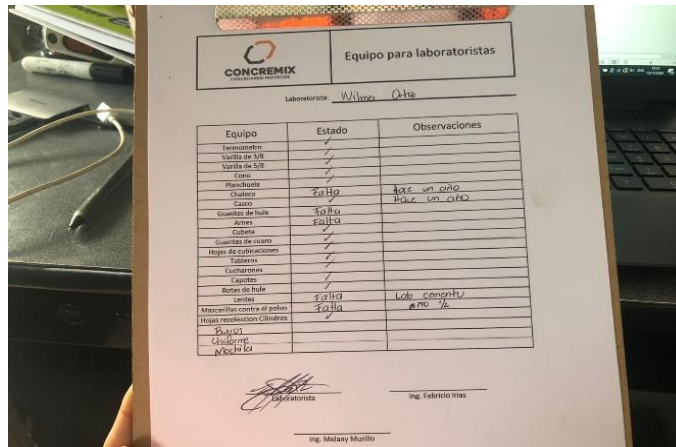 CONCREMIX
CONCRETANDO PROYECTOS
Equipo para laboratoristas
Laboratorista: Wilmer Ortiz
Equipo Estado Observaciones
Termometro ✓
Varilla de 3/8 ✓
Varilla de 5/8 ✓
Cono ✓
Planchuela ✓
Chaleco Falta Hace un año
Casco ✓ Hace un año
Guantes de hule Falta
Arnes Falta
Cubeta ✓
Guantes de cuero ✓
Hojas de cubicaciones ✓
Tableros ✓
Cucharones ✓
Capotes ✓
Botas de hule ✓
Lentes Falta
Mascarillas contra el polvo Falta año 1/2
Hojas recoleccion Cilindros ✓
Burros
Uniforme
Mochila
Laboratorista
Ing. Fabricio Irias
Ing. Melany Murillo